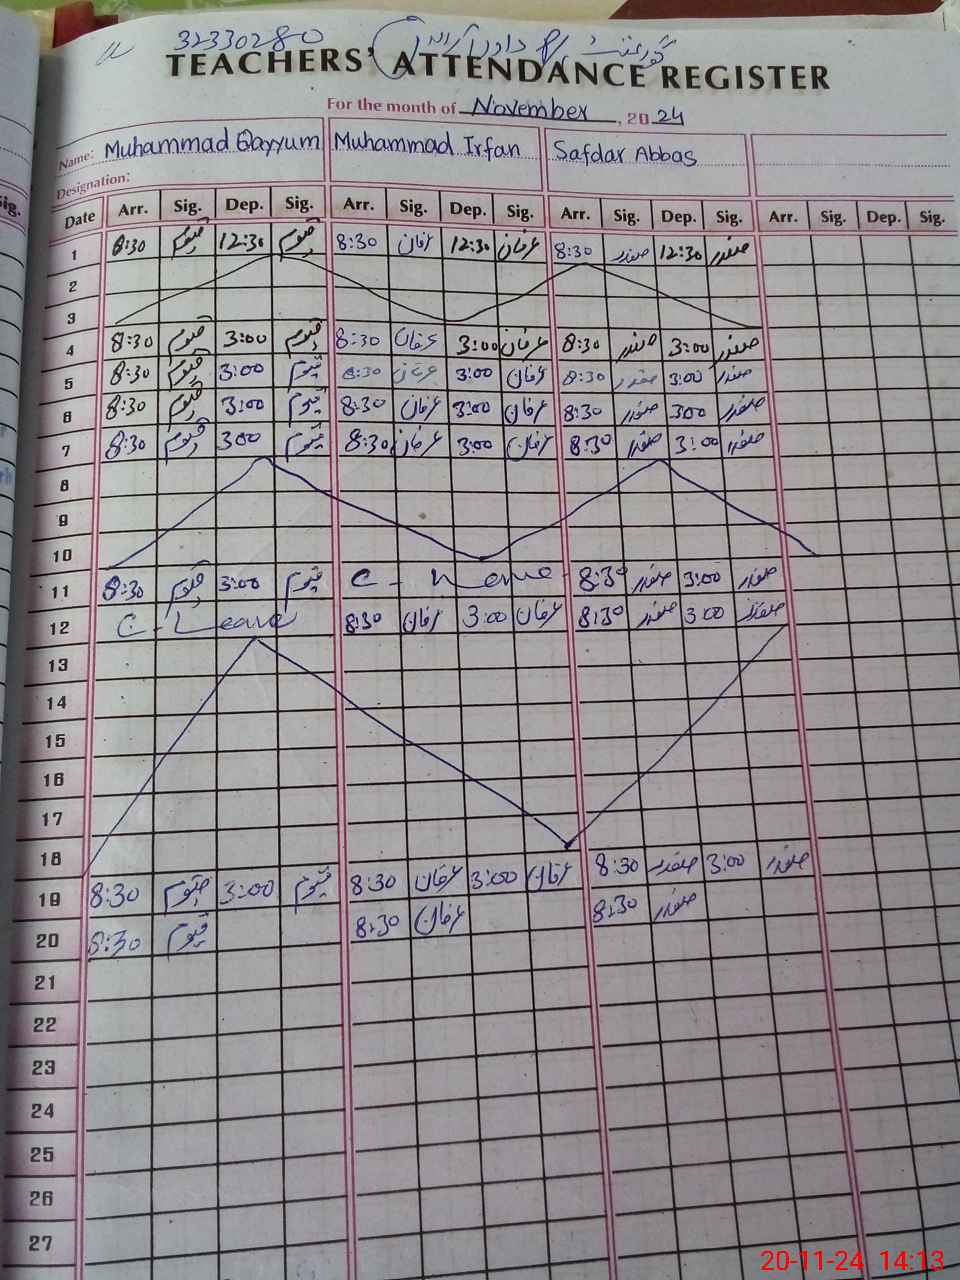 32330280
TEACHERS' ATTENDANCE REGISTER
For the month of November, 2024
Name: Muhammad Qayyum Muhammad Irfan Safdar Abbas
Designation:
Date Arr. Sig. Dep. Sig. Arr. Sig. Dep. Sig. Arr. Sig. Dep. Sig. Arr. Sig. Dep. Sig.
1 8:30 قیوم 12:30 قیوم 8:30 عرفان 12:30 عرفان 8:30 صفدر 12:30 صفدر
2
3
4 8:30 قیوم 3:00 قیوم 8:30 عرفان 3:00 عرفان 8:30 صفدر 3:00 صفدر
5 8:30 قیوم 3:00 قیوم 8:30 عرفان 3:00 عرفان 8:30 صفدر 3:00 صفدر
6 8:30 قیوم 3:00 قیوم 8:30 عرفان 3:00 عرفان 8:30 صفدر 300 صفدر
7 8:30 قیوم 300 قیوم 8:30 عرفان 3:00 عرفان 8:30 صفدر 3:00 صفدر
8
9
10
11 8:30 قیوم 3:00 قیوم C - Leave 8:30 صفدر 3:00 صفدر
12 C - Leave 8:30 عرفان 3:00 عرفان 8:30 صفدر 3:00 صفدر
13
14
15
16
17
18
19 8:30 قیوم 3:00 قیوم 8:30 عرفان 3:00 عرفان 8:30 صفدر 3:00 صفدر
20 8:30 قیوم 8:30 عرفان 8:30 صفدر
21
22
23
24
25
26
27
20-11-24 14:13